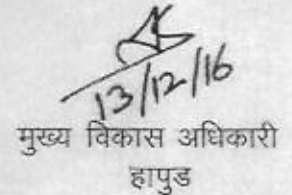 13/12/16
मुख्य विकास अधिकारी
हापुड